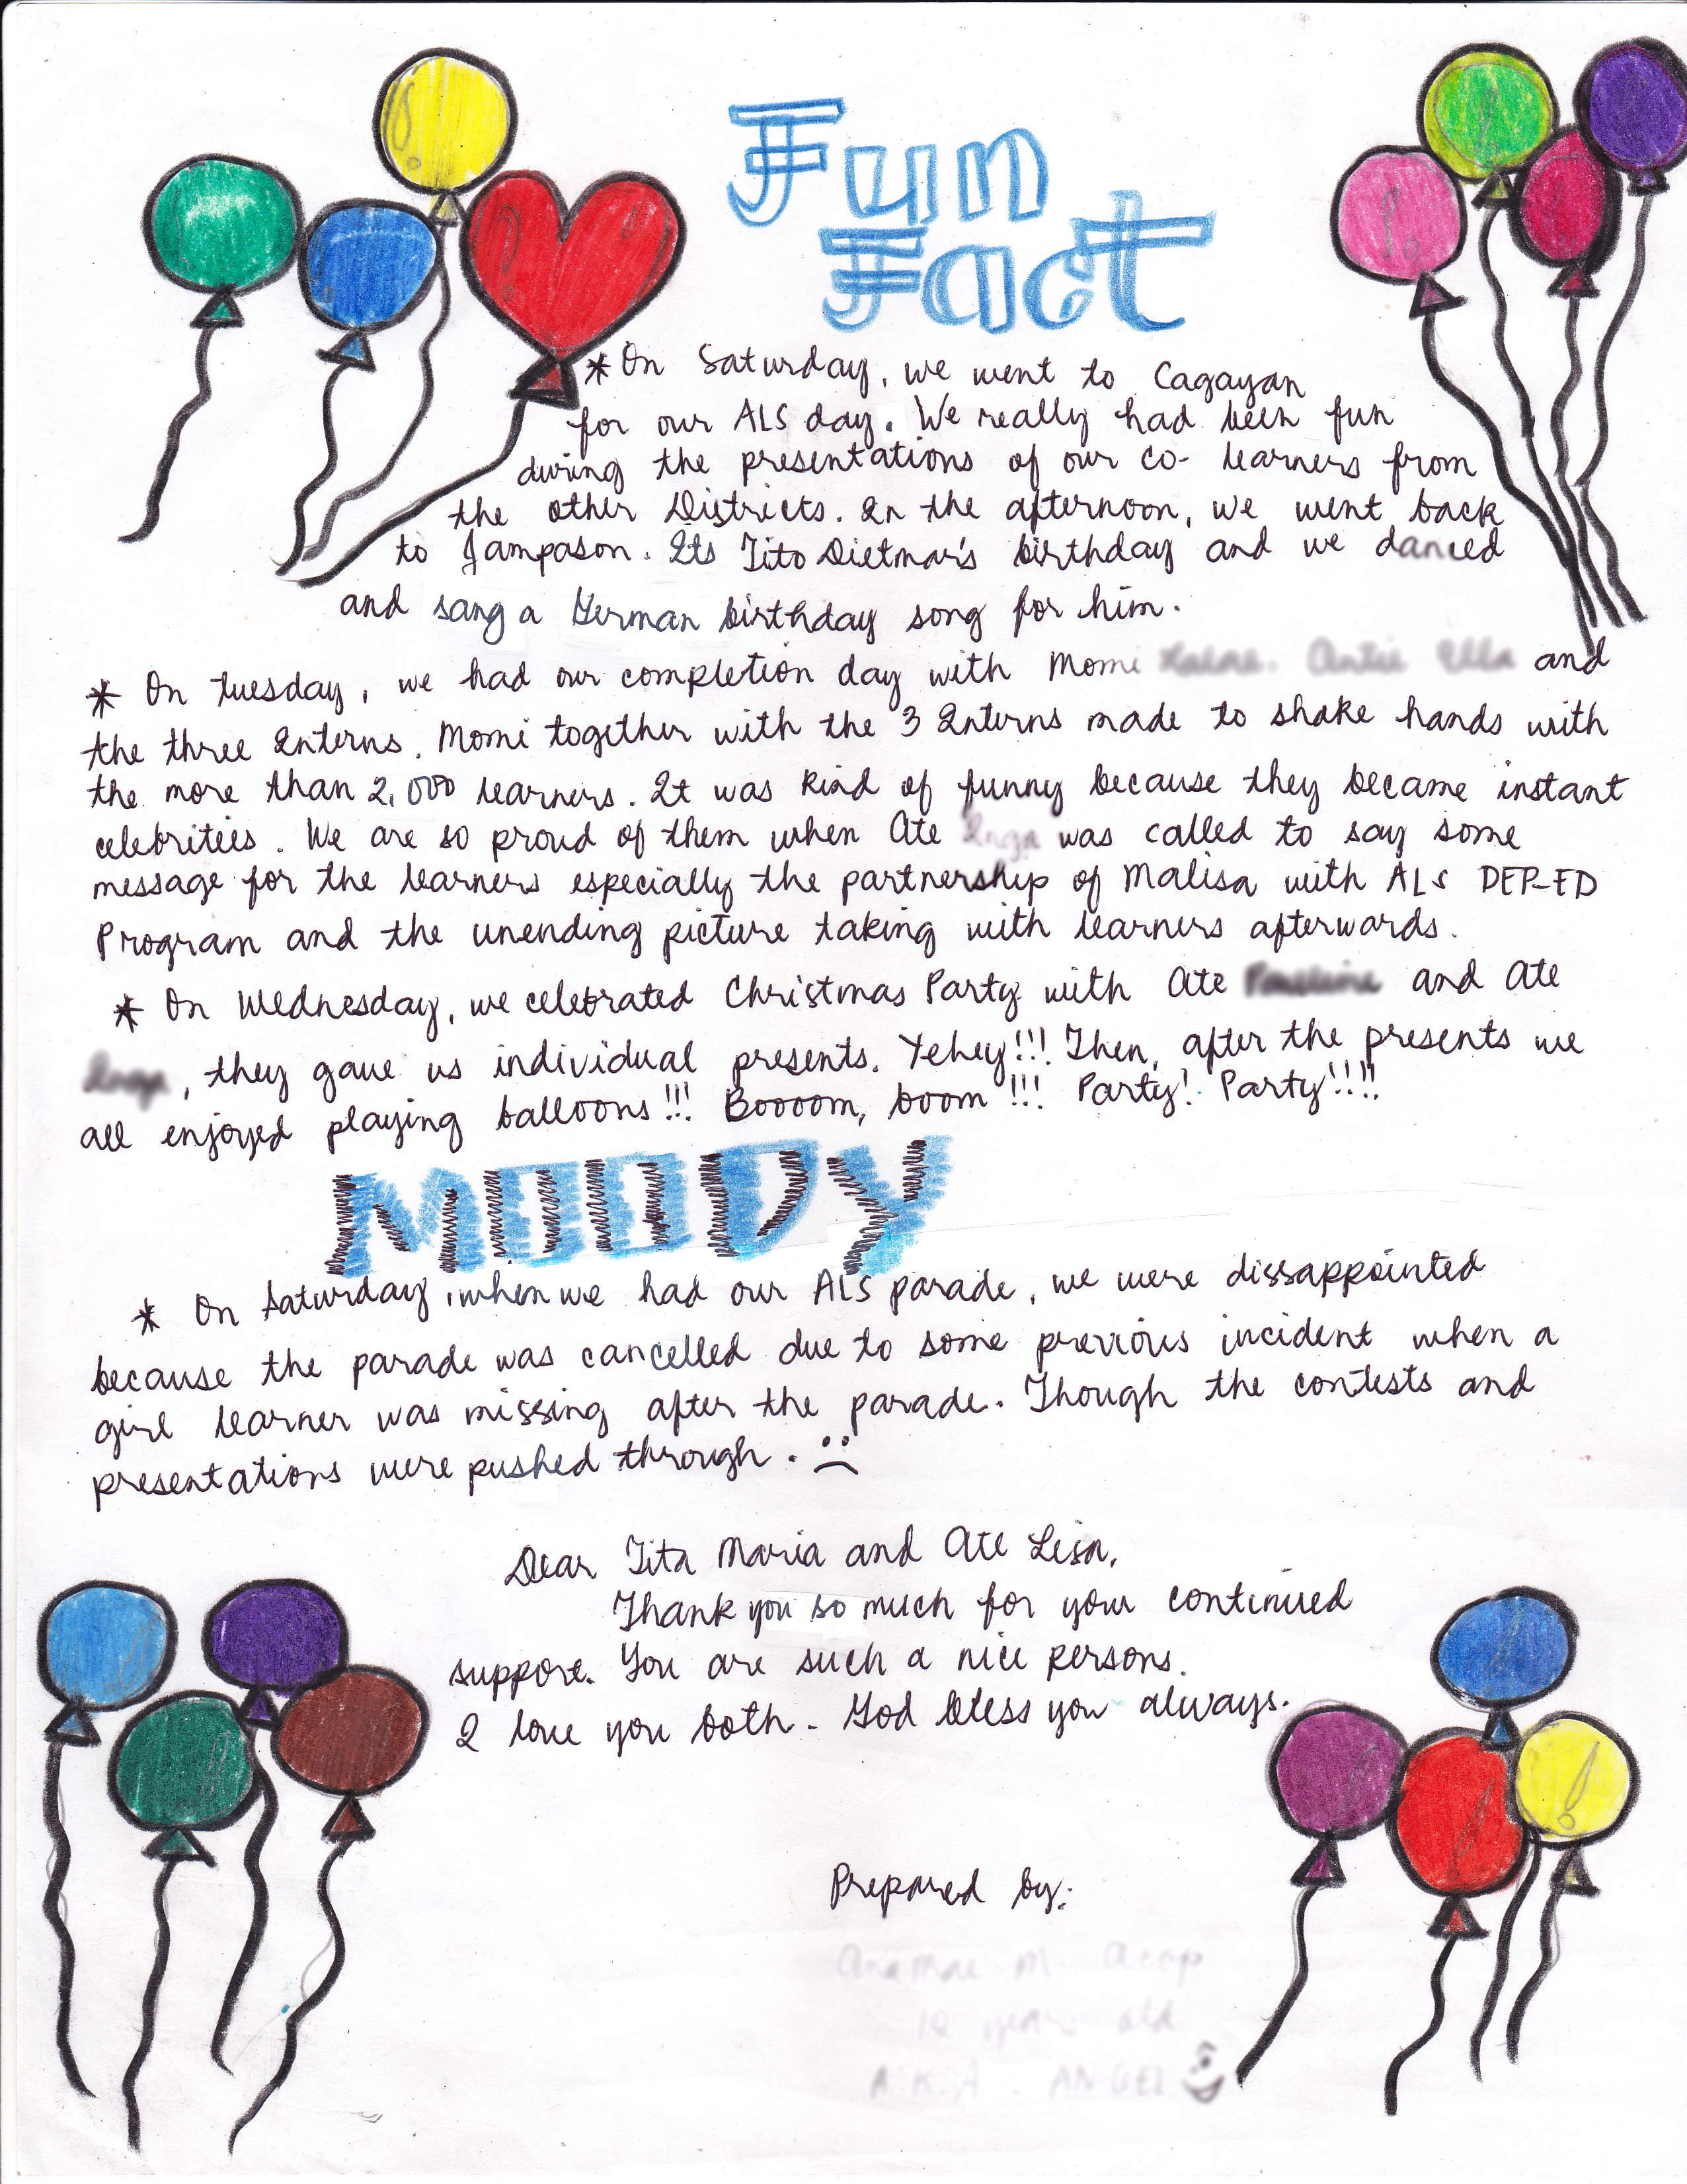 Fun
Fact
* On Saturday, we went to Cagayan
for our ALS day. We really had been fun
during the presentations of our co- learners from
the other Districts. In the afternoon, we went back
to Jampason. Its Tito Dietmar's birthday and we danced
and sang a German birthday song for him.
* On Tuesday, we had our completion day with Momi and
the three Interns. Momi together with the 3 Interns made to shake hands with
the more than 2,000 learners. It was kind of funny because they became instant
celebritees. We are so proud of them when Ate was called to say some
message for the learners especially the partnership of Malisa with ALS DEP-ED
Program and the unending picture taking with learners afterwards.
* On Wednesday, we celebrated Christmas Party with Ate and Ate
, they gave us individual presents. Yehey!!! Then, after the presents we
all enjoyed playing balloons!!! Boooom, boom!!! Party! Party!!!!
MOODY
* On Saturday, when we had our ALS parade, we were dissappointed
because the parade was cancelled due to some previous incident when a
girl learner was missing after the parade. Though the contests and
presentations were pushed through. :(
Dear Tita Maria and Ate Lisa,
Thank you so much for your continued
support. You are such a nice persons.
I love you both. God bless you always.
Prepared by: